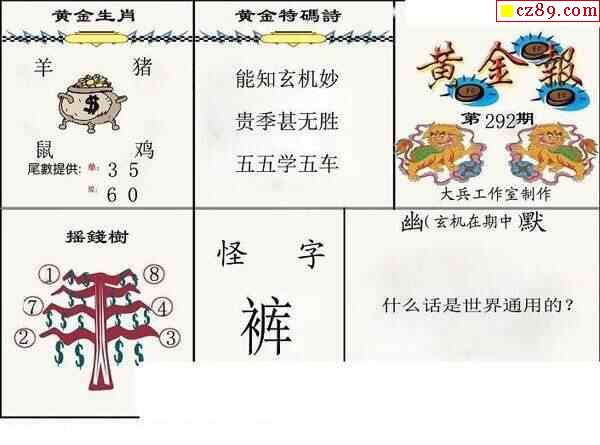 cz89.com
黄金生肖
羊 猪
$
鼠 鸡
尾數提供: 单: 3 5
双: 6 0
黄金特碼詩
能知玄机妙
贵季甚无胜
五五学五车
黄金報
第292期
大兵工作室制作
摇錢樹
① ⑧
⑦ ④
② ③
怪 字
裤
幽(玄机在期中)默
什么话是世界通用的?